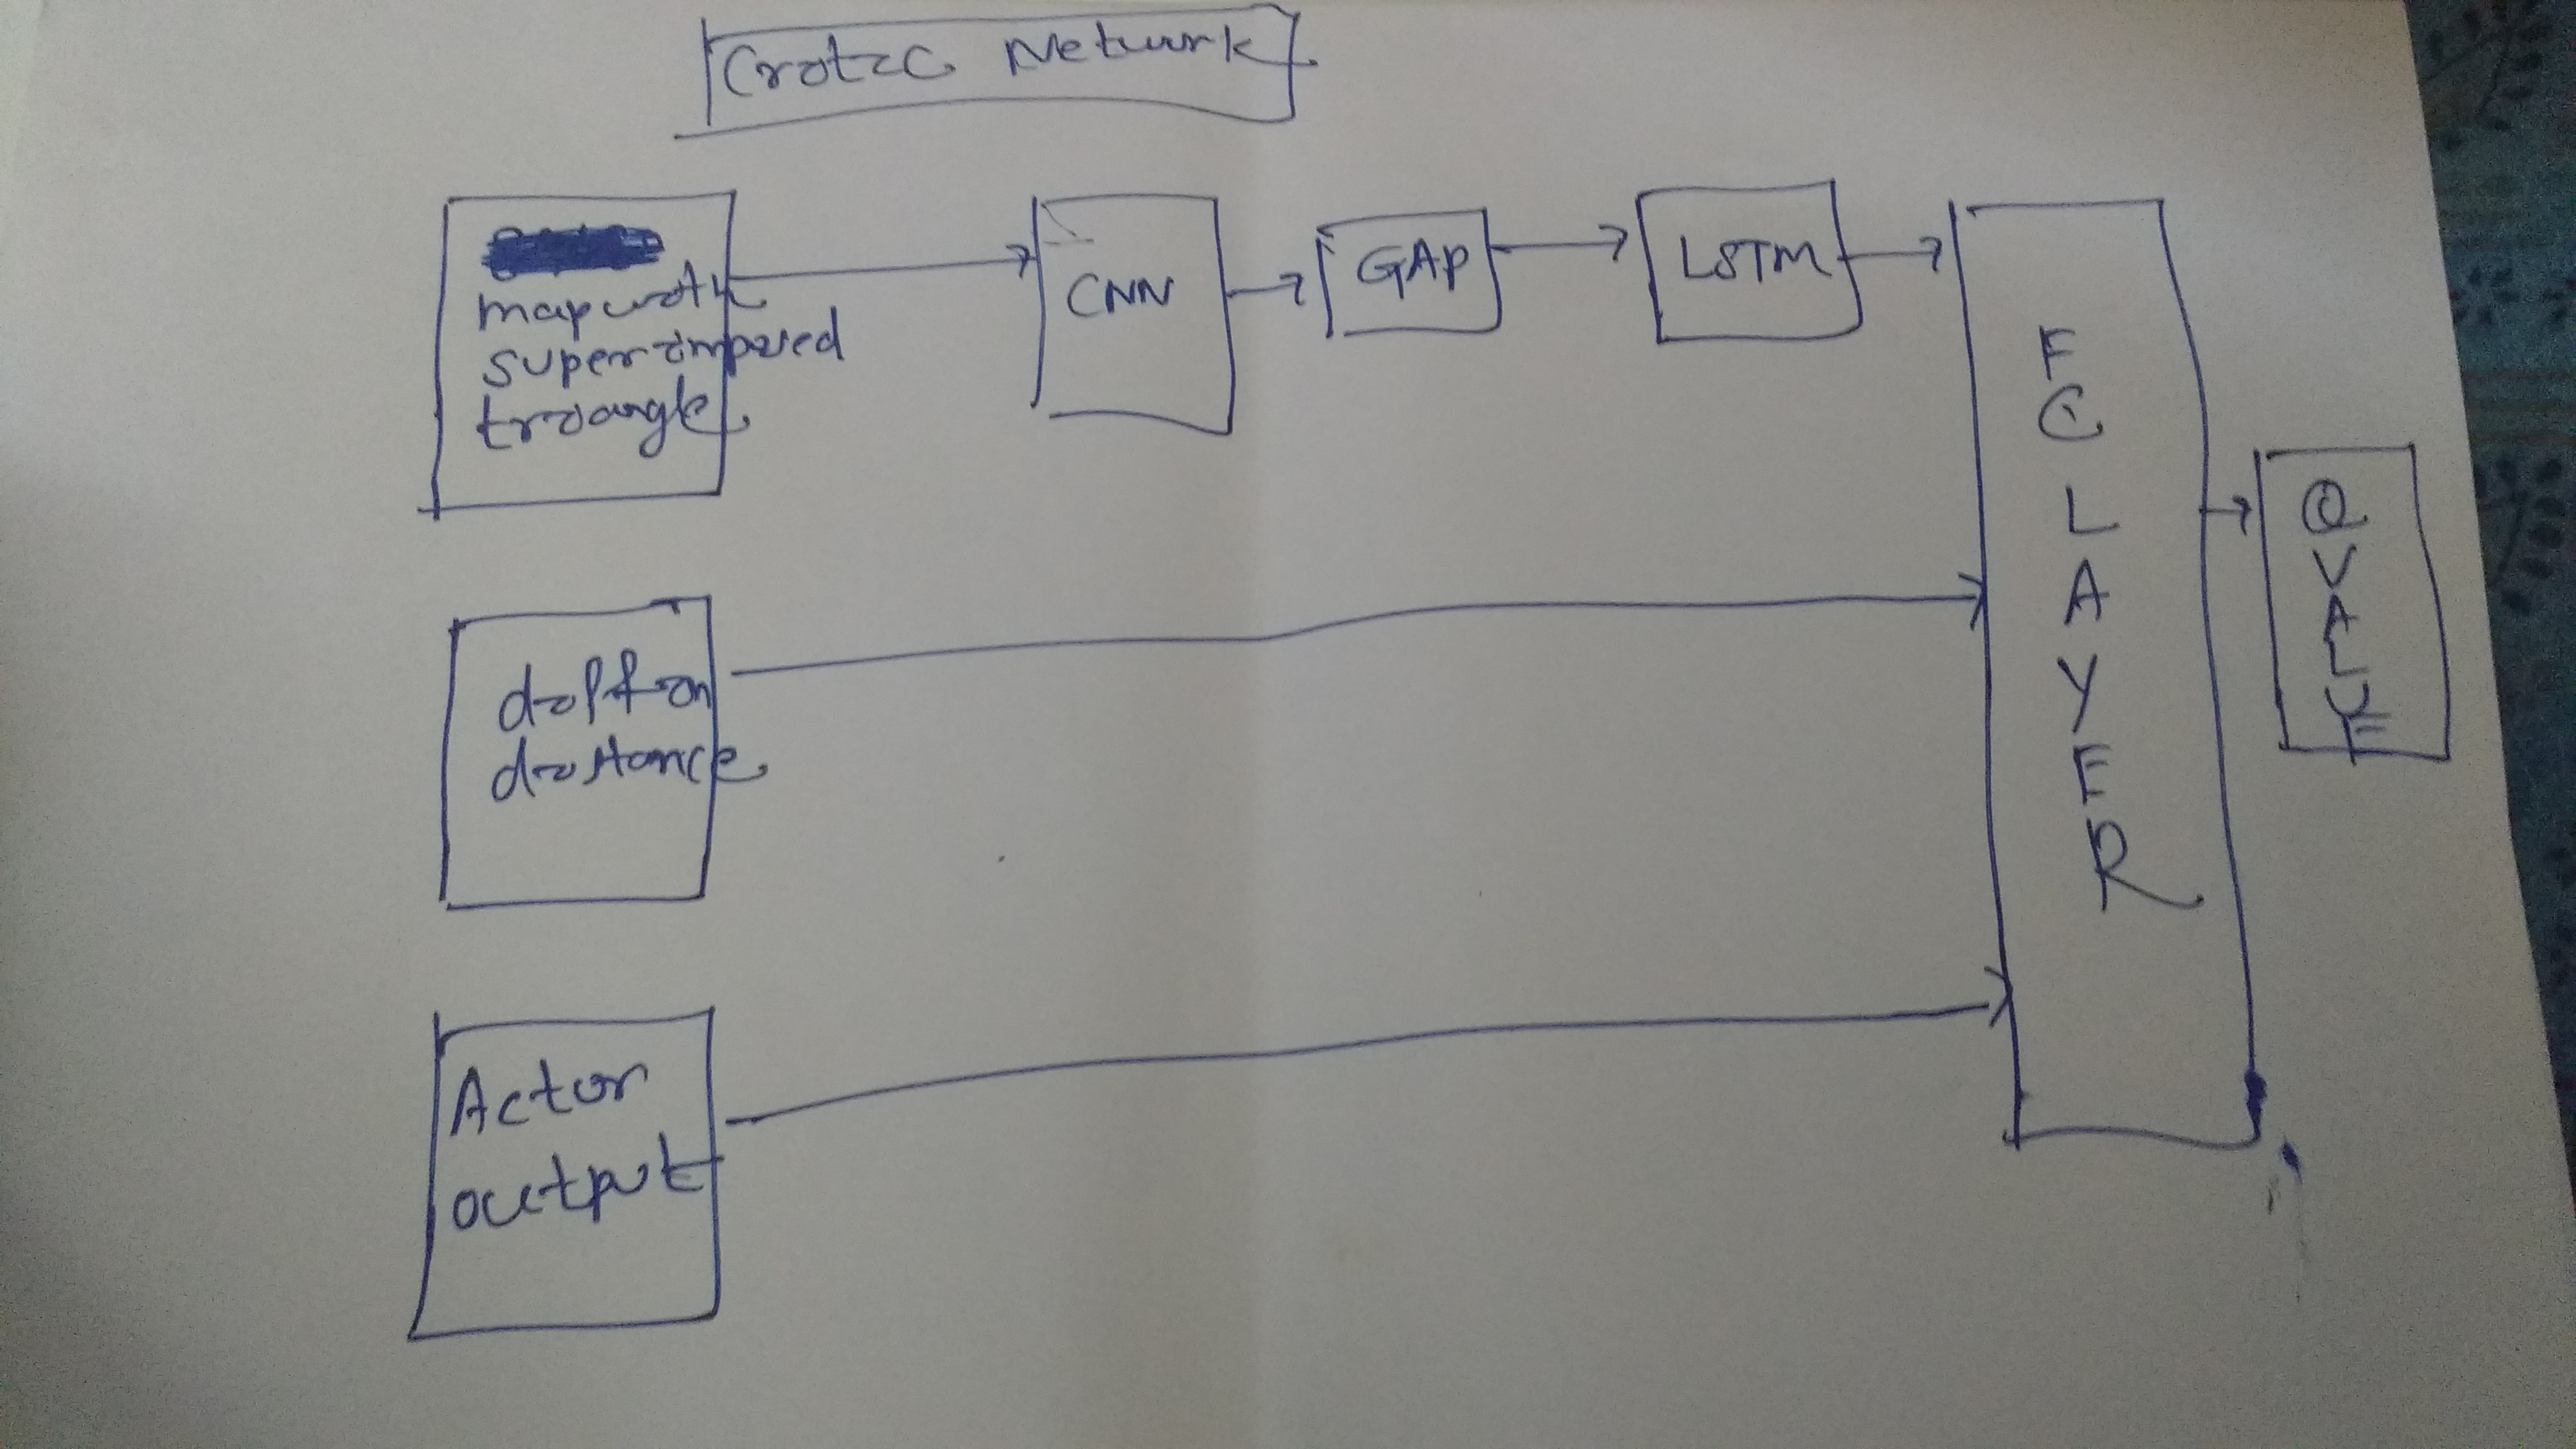 Critic Network
map with
superimposed
triangle
CNN
GAP
LSTM
FC LAYER
Q VALUE
distance
Actor
output